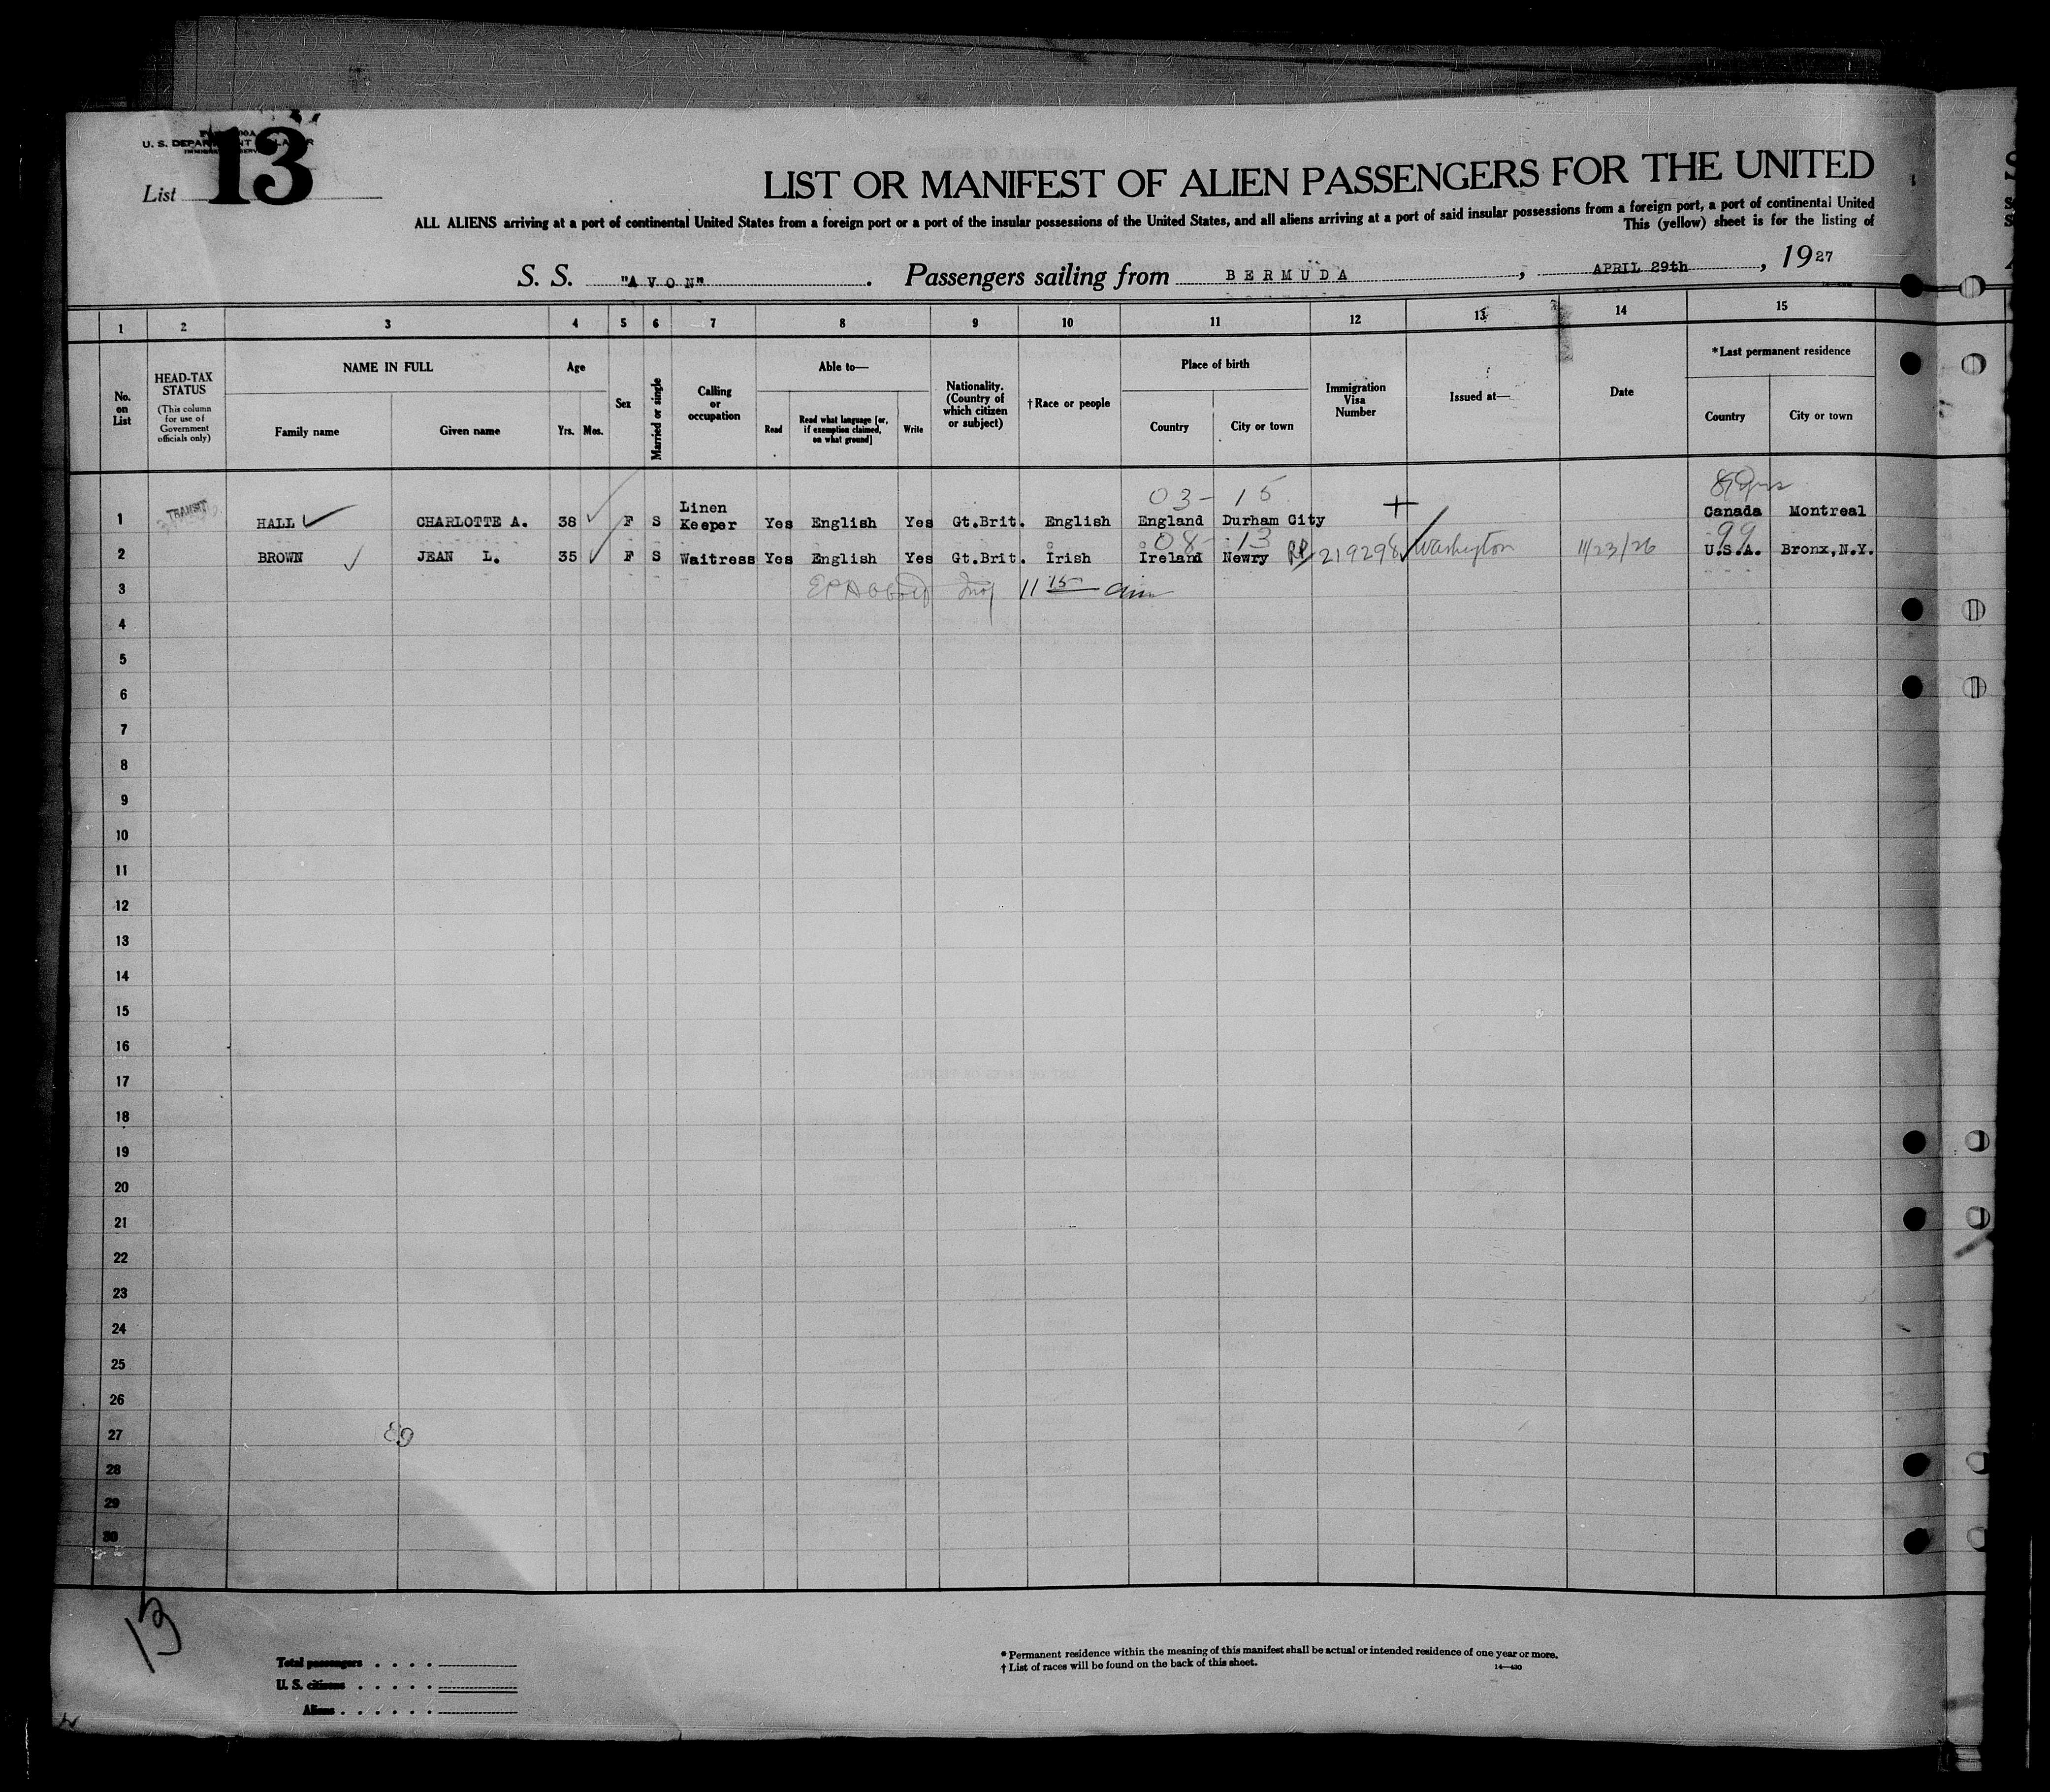 U. S. DEPARTMENT LABOR
List 13
LIST OR MANIFEST OF ALIEN PASSENGERS FOR THE UNITED
ALL ALIENS arriving at a port of continental United States from a foreign port or a port of the insular possessions of the United States, and all aliens arriving at a port of said insular possessions from a foreign port, a port of continental United
This (yellow) sheet is for the listing of
S. S. "AVON". Passengers sailing from BERMUDA, APRIL 29th, 1927
1 2 3 4 5 6 7 8 9 10 11 12 13 14 15
No. on List
HEAD-TAX STATUS
(This column for use of Government officials only)
NAME IN FULL
Family name
Given name
Age
Yrs. Mos.
Sex
Married or single
Calling or occupation
Able to—
Read
Read what language [or, if exemption claimed, on what ground]
Write
Nationality. (Country of which citizen or subject)
†Race or people
Place of birth
Country
City or town
Immigration Visa Number
Issued at—
Date
*Last permanent residence
Country
City or town
03- 15
1 TRANSIT HALL CHARLOTTE A. 38 F S Linen Keeper Yes English Yes Gt.Brit. English England Durham City Canada Montreal
08- 13 99
2 BROWN JEAN L. 35 F S Waitress Yes English Yes Gt.Brit. Irish Ireland Newry RP 219298 Washington 11/23/26 U.S.A. Bronx, N.Y.
3 11 15
4
5
6
7
8
9
10
11
12
13
14
15
16
17
18
19
20
21
22
23
24
25
26
27
28
29
30
13
Total passengers . . . .
U. S. citizens . . . . .
Aliens . . . . . .
* Permanent residence within the meaning of this manifest shall be actual or intended residence of one year or more.
† List of races will be found on the back of this sheet.
14—430